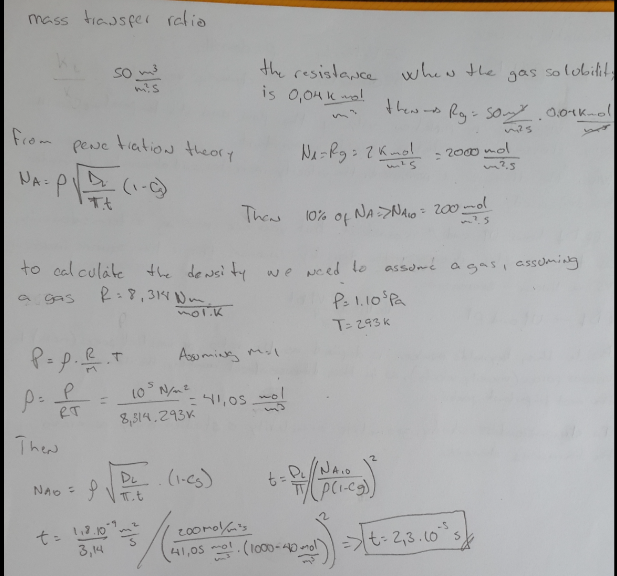 mass transfer ratio
50 m³/m²s
the resistance when the gas solobility
is 0,04 Kmol/m³ then → Rg = 50 m³/m²s . 0.04 Kmol/m³
From penetration theory
NA = Rg = 2 Kmol/m²s = 2000 mol/m².s
NA = ρ √(DL/π.t) (1-Cs)
Then 10% of NA => NA10 = 200 mol/m².s
to calculate the density we need to assume a gas, assuming
a gas R = 8,314 Nm/mol.K
P = 1.10⁵ Pa
T = 293K
P = ρ . R/m . T Assuming m=1
ρ = P/RT = 10⁵ N/m² / 8,314.293K = 41,05 mol/m³
Then
NA10 = ρ √(DL/π.t) . (1-Cs) t = DL/π / (NA10/ρ(1-Cg))²
t = 1,8.10⁻⁹/3,14 m²/s / (200 mol/m²s / 41,05 mol/m³ . (1000-40 mol/m³))² => t = 2,3.10⁻⁵ s